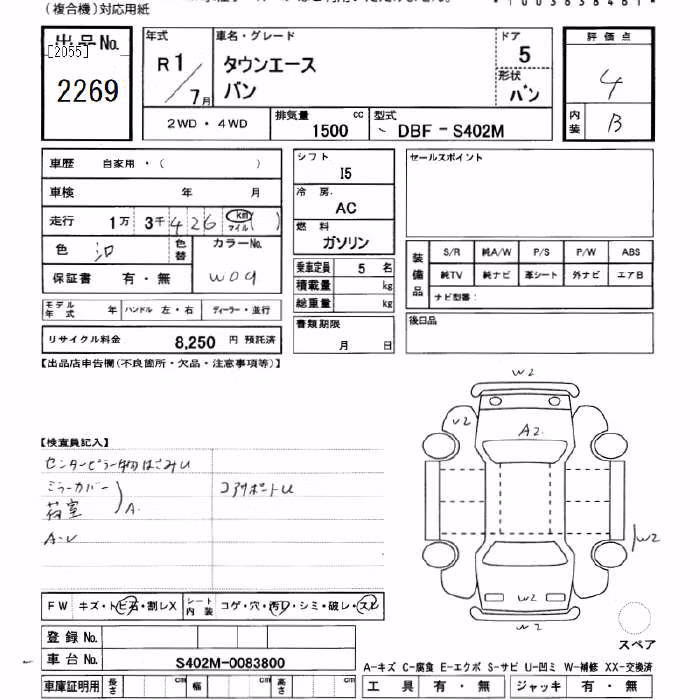 (複合機)対応用紙
出品No.
[2055]
2269
年式
R1/7月
車名・グレード
タウンエース
バン
ドア
5
形状
バン
評価点
4
内装
B
2WD・4WD
排気量
1500 cc
型式
DBF-S402M
車歴 自家用・( )
車検 年 月
走行 1万 3千 426 km マイル ( )
色
色替
カラーNo.
W09
保証書 有・無
モデル年式 年 ハンドル 左・右 ディーラー・並行
リサイクル料金 8,250 円 預託済
シフト
I5
冷房
AC
燃料
ガソリン
乗車定員 5 名
積載量 kg
総重量 kg
書類期限
月 日
セールスポイント
装備品
S/R 純A/W P/S P/W ABS
純TV 純ナビ 革シート 外ナビ エアB
ナビ型番:
後日品
【出品店申告欄(不良箇所・欠品・注意事項等)】
【検査員記入】
センターピラー
ミラーカバー
荷室 A.
コアサポートU
FW キズ・トビ石・割レX シート内装 コゲ・穴・汚レ・シミ・破レ・スレ
登録No.
車台No. S402M-0083800
車庫証明用 長さ cm 幅 cm 高さ cm
W2
V2
A2.
W2
W2
W2
スペア
A-キズ C-腐食 E-エクボ S-サビ U-凹ミ W-補修 XX-交換済
工具 有・無 ジャッキ 有・無